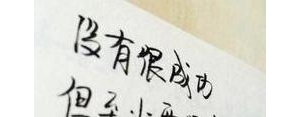 没有很成功
但至少